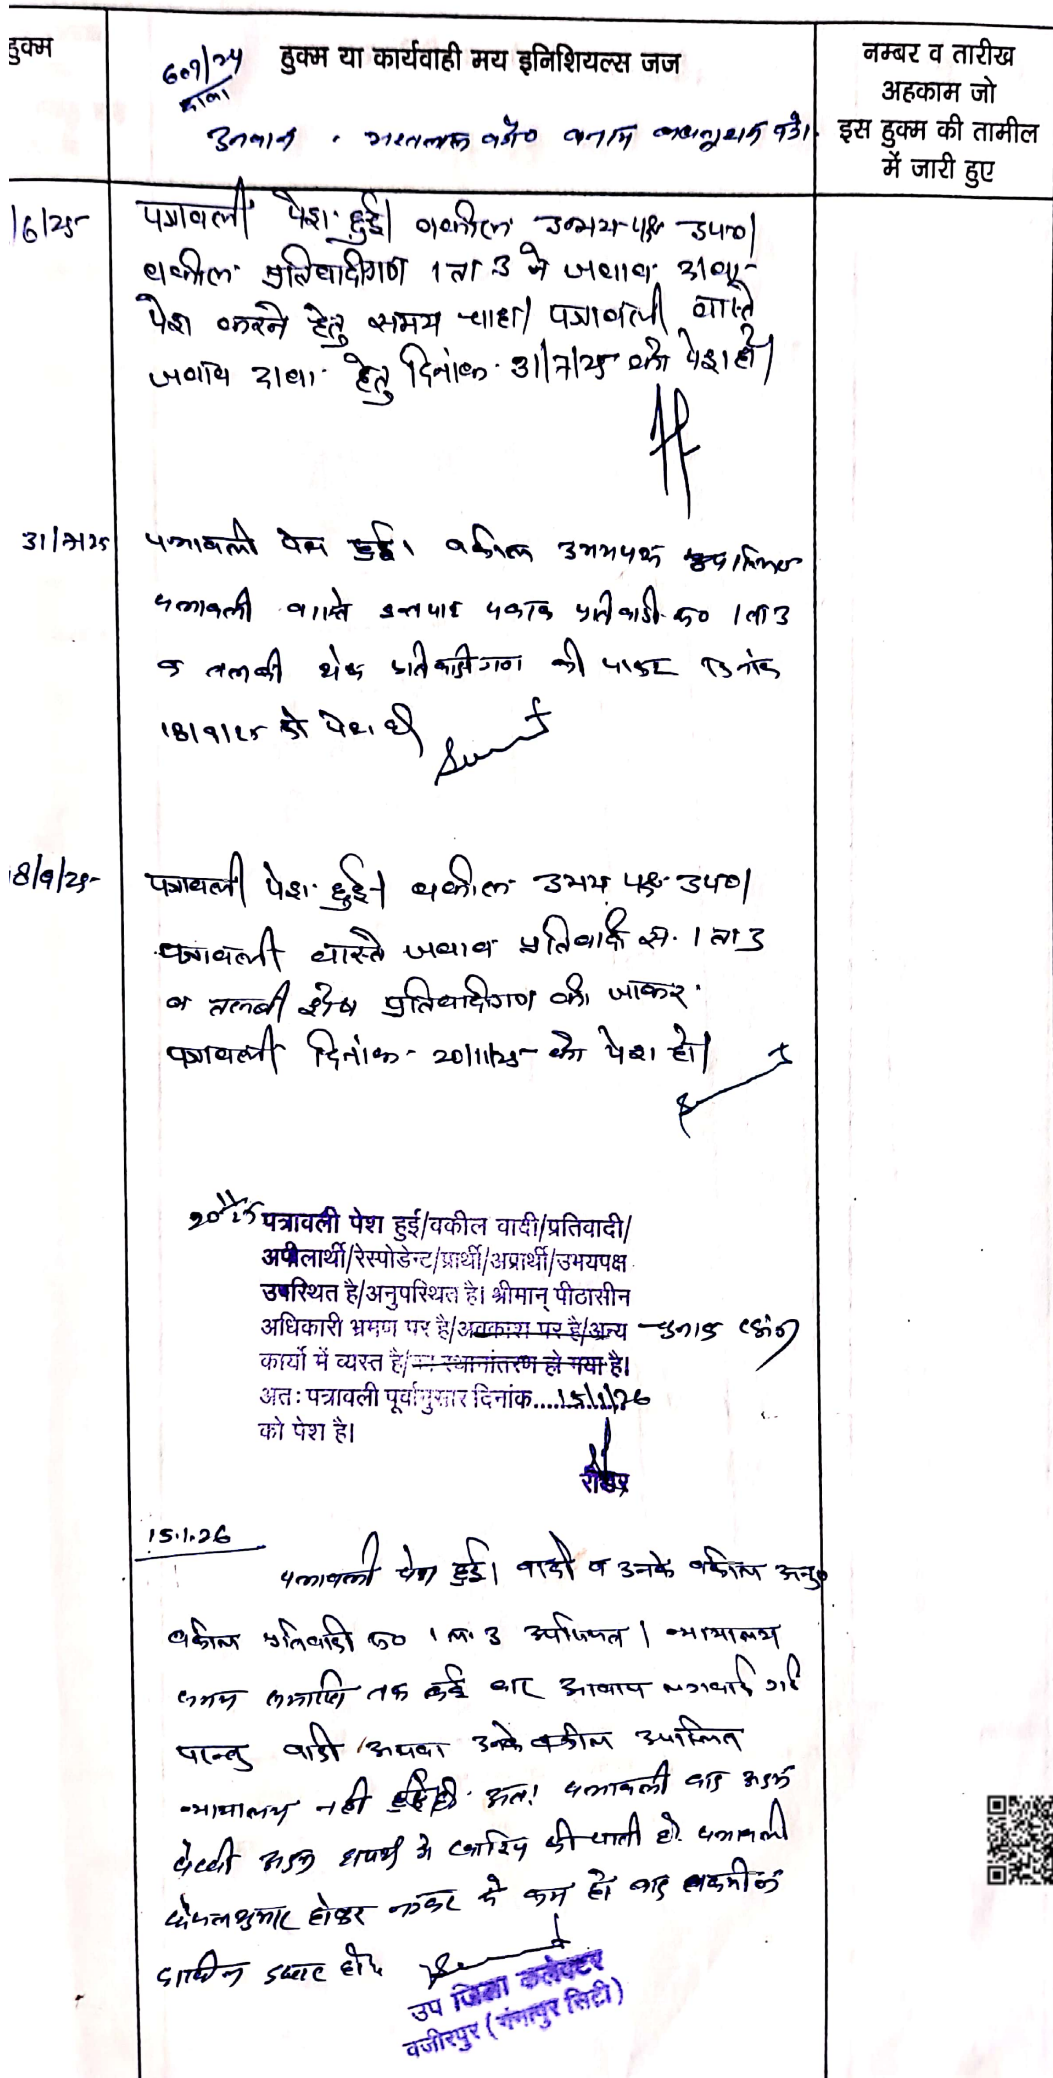 हुक्म
हुक्म या कार्यवाही मय इनिशियल्स जज
नम्बर व तारीख
अहकाम जो
इस हुक्म की तामील
में जारी हुए
607/24
दावा
उनवान बनाम
/6/25
पत्रावली पेश हुई। वकील उभय पक्ष उप०।
वकील प्रतिवादीगण 1 ता 3 ने जवाब दावा
पेश करने हेतु समय चाहा। पत्रावली वास्ते
जवाब दावा हेतु दिनांक 31/7/25 को पेश हो।
31/7/25
पत्रावली पेश हुई। वकील उभयपक्ष
पत्रावली वास्ते प्रतिवादी क्र० 1 ता 3
व तलबी शेष प्रतिवादीगण की जाकर दिनांक
18/9/25 को पेश हो
18/9/25
पत्रावली पेश हुई। वकील उभय पक्ष उप०।
पत्रावली वास्ते जवाब प्रतिवादी सं. 1 ता 3
व तलबी शेष प्रतिवादीगण की जाकर
पत्रावली दिनांक 20/11/25 को पेश हो।
20/11/25 पत्रावली पेश हुई/वकील वादी/प्रतिवादी/
अपीलार्थी/रेस्पोडेन्ट/प्रार्थी/अप्रार्थी/उभयपक्ष
उपस्थित है/अनुपस्थित है। श्रीमान् पीठासीन
अधिकारी भ्रमण पर है/अवकाश पर है/अन्य
कार्यो में व्यस्त है/का स्थानांतरण हो गया है।
अतः पत्रावली पूर्वानुसार दिनांक....15/1/26
को पेश है।
रीडर
15.1.26
पत्रावली पेश हुई। वादी व उनके वकील अनु०
वकील प्रतिवादी क्र० 1 ता 3 उपस्थित। न्यायालय
समय समाप्ति तक कई बार आवाज लगवाई गई
परन्तु वादी अथवा उनके वकील उपस्थित
न्यायालय नही अतः पत्रावली वाद अदम
पैरवी अदम में खारिज की जाती है. पत्रावली
फैसलशुमार होकर नंबर से कम हो बाद तकमील
दाखिल दफ्तर होवे
उप जिला कलेक्टर
वजीरपुर (गंगापुर सिटी)